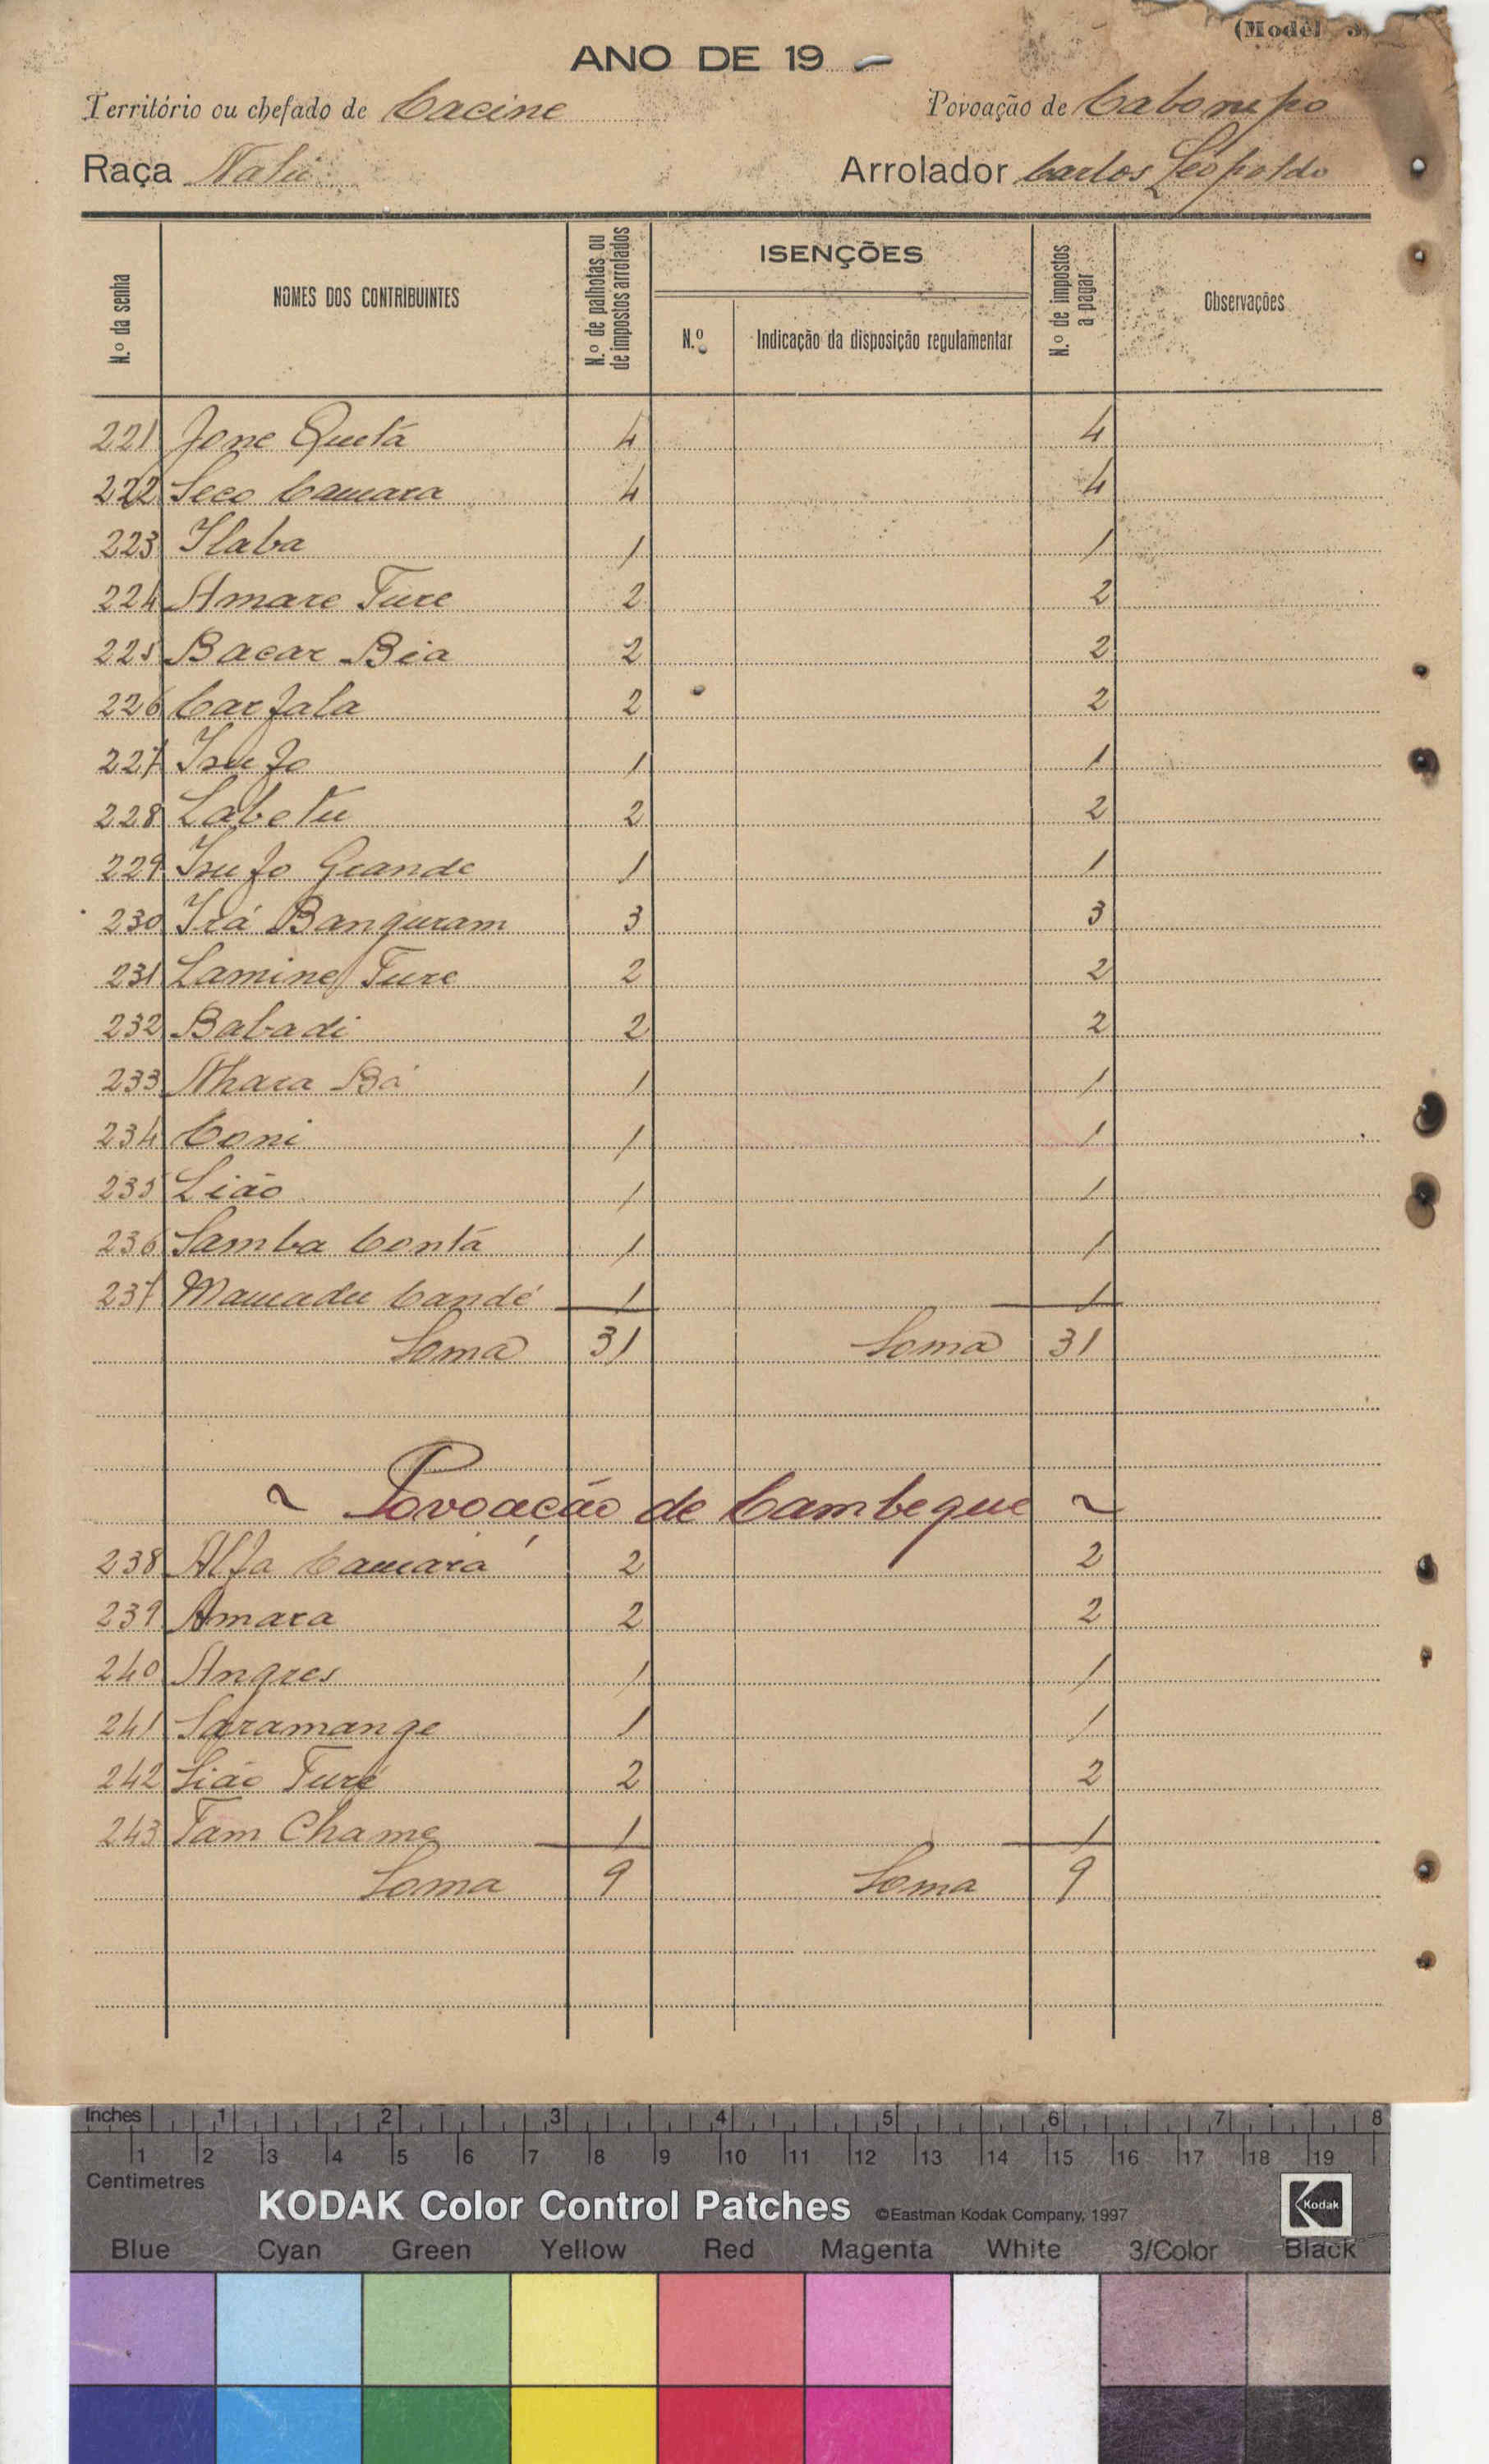 (Model 3)
ANO DE 19 -
Território ou chefado de Cacine Povoação de Cabonepo
Raça Nalú Arrolador Carlos Leopoldo
N.º da senha NOMES DOS CONTRIBUINTES N.º de palhotas ou de impostos arrolados ISENÇÕES N.º Indicação da disposição regulamentar N.º de impostos a pagar Observações
221 Jone Quetá 4 4
222 Seco Camara 4 4
223 Ilaba 1 1
224 Amare Ture 2 2
225 Bacar Bia 2 2
226 Carfala 2 2
227 Isufo 1 1
228 Labetu 2 2
229 Isufo Grande 1 1
230 Irá Banguram 3 3
231 Lamine Ture 2 2
232 Babadi 2 2
233 Nhara Bá 1 1
234 Coni 1 1
235 Lião 1 1
236 Samba Contá 1 1
237 Mamadu Candé 1 1
Soma 31 Soma 31
~ Povoação de Cambeque ~
238 Alfa Camará 2 2
239 Amara 2 2
240 Angres 1 1
241 Saramange 1 1
242 Sião Turé 2 2
243 Tam Chame 1 1
Soma 9 Soma 9
Inches 1 2 3 4 5 6 7 8
1 2 3 4 5 6 7 8 9 10 11 12 13 14 15 16 17 18 19
Centimetres
KODAK Color Control Patches ©Eastman Kodak Company, 1997 Kodak
Blue Cyan Green Yellow Red Magenta White 3/Color Black